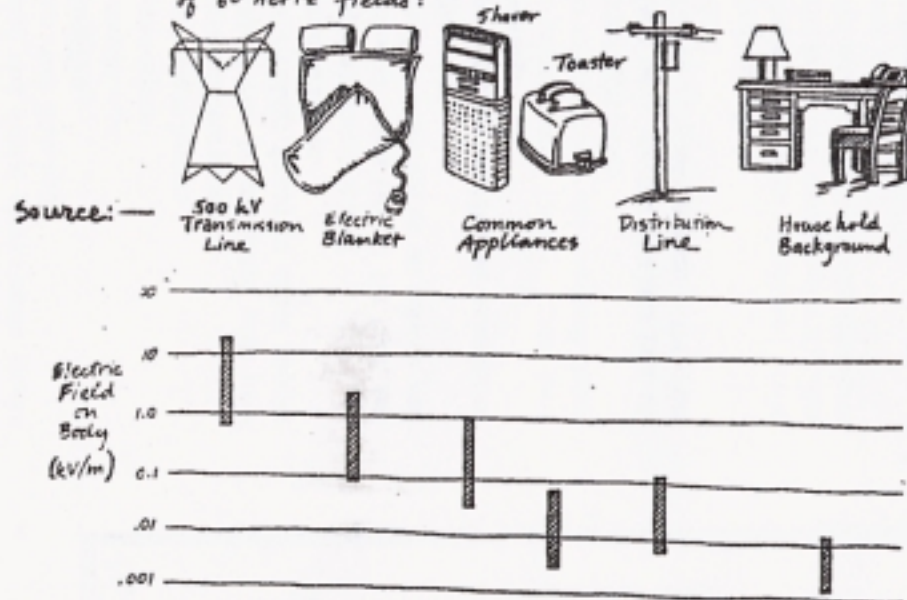 of 60 hertz fields:
Shaver
Toaster
Source: —
500 kV
Transmission
Line
Electric
Blanket
Common
Appliances
Distribution
Line
Household
Background
10
1.0
0.1
.01
.001
Electric
Field
on
Body
(kV/m)